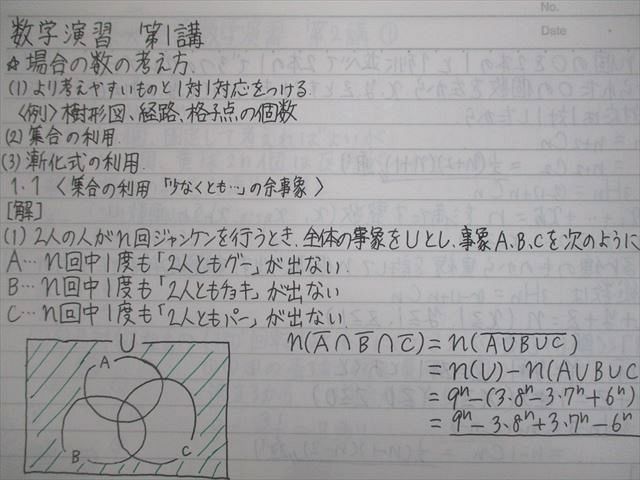 No.
Date
数学演習 第1講
☆ 場合の数の考え方.
(1) より考えやすいものと1対1対応をつける.
〈例〉樹形図、経路、格子点の個数
(2) 集合の利用.
(3) 漸化式の利用.
1.1 〈集合の利用 「少なくとも…」の余事象〉
[解]
(1) 2人の人がn回ジャンケンを行うとき、全体の事象をUとし、事象A、B、Cを次のように
A… n回中1度も「2人ともグー」が出ない.
B… n回中1度も「2人ともチョキ」が出ない
C… n回中1度も「2人ともパー」が出ない.
U
A
B
C
n(A̅∩B̅∩C̅) = n(A̅∪̅B̅∪̅C̅)
= n(U) - n(A∪B∪C
= 9ⁿ-(3・8ⁿ-3・7ⁿ+6ⁿ)
= 9ⁿ-3・8ⁿ+3・7ⁿ-6ⁿ